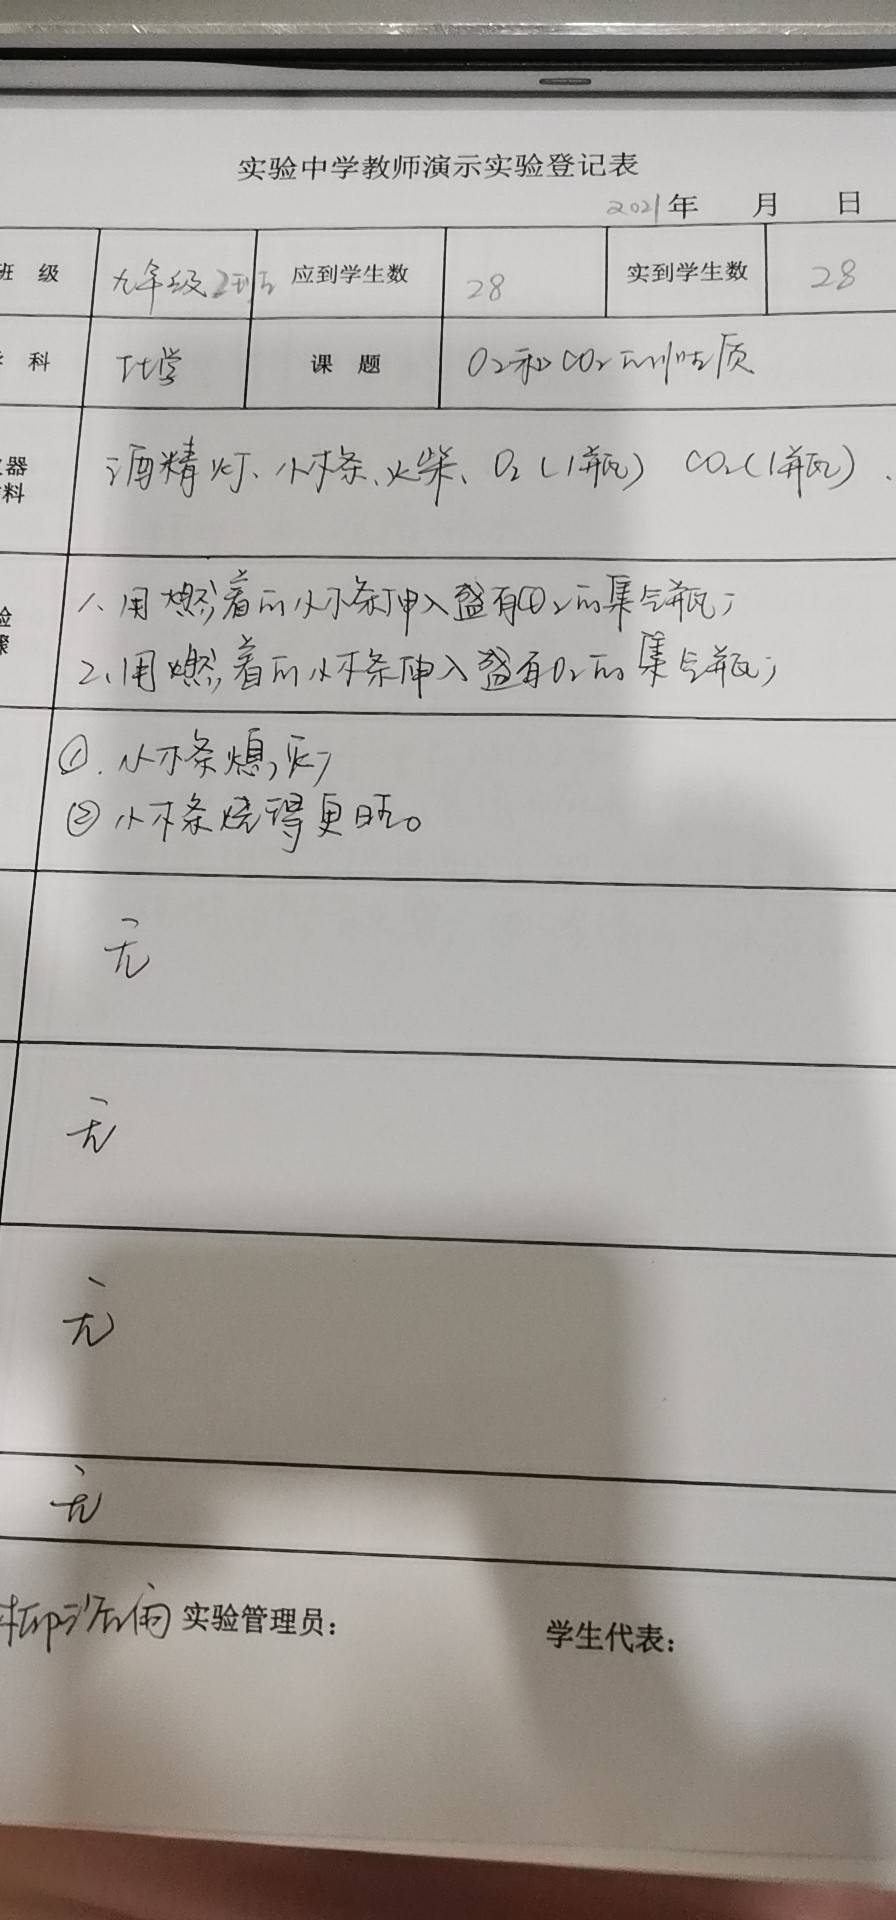 实验中学教师演示实验登记表
2021年 月 日
班 级 九年级2班 应到学生数 28 实到学生数 28
科 化学 课 题 O₂和CO₂的性质
器
料
酒精灯、小木条、火柴、O₂(1瓶) CO₂(1瓶).
验
1、用燃着的小木条伸入盛有CO₂的集气瓶;
2、用燃着的小木条伸入盛有O₂的集气瓶;
①.小木条熄灭;
②小木条烧得更旺。
无
无
无
无
实验管理员: 学生代表: